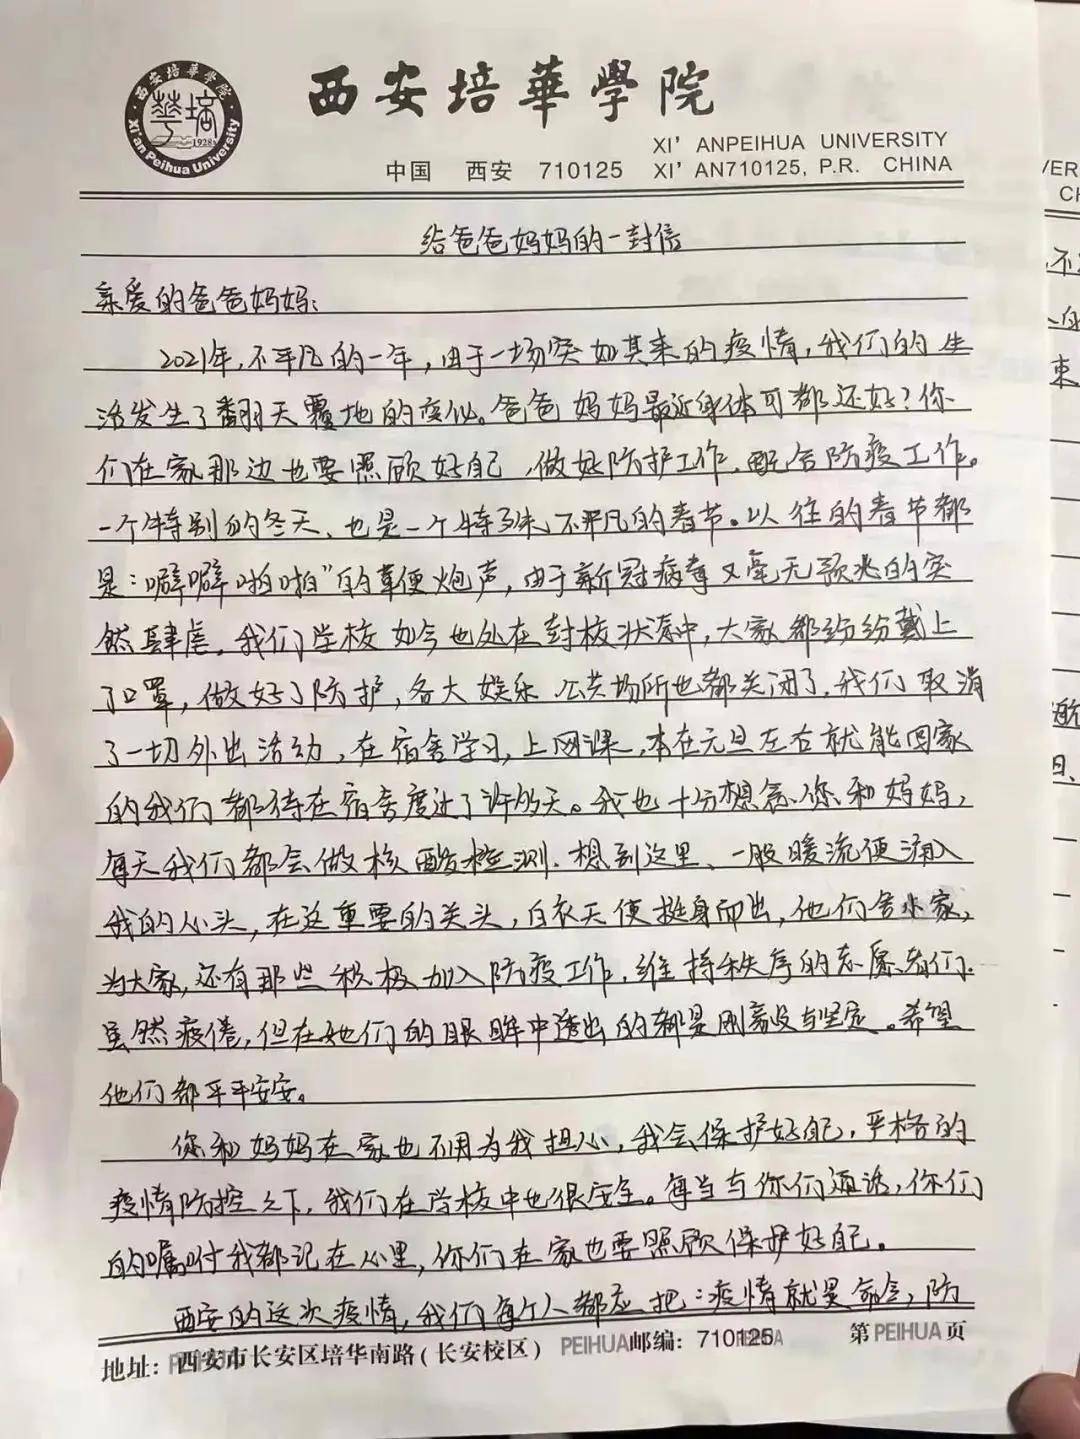 西安培華學院
XI' ANPEIHUA UNIVERSITY
中国 西安 710125 XI' AN710125, P.R. CHINA
西安培華學院
培華
1928
Xi'an Peihua University
给爸爸妈妈的一封信
亲爱的爸爸妈妈:
2021年,不平凡的一年,由于一场突如其来的疫情,我们的生
活发生了翻天覆地的变化。爸爸妈妈最近身体可都还好?你
们在家那边也要照顾好自己,做好防护工作,配合防疫工作。
一个特别的冬天、也是一个特殊、不平凡的春节。以往的春节都
是:噼噼啪啪”的鞭炮声,由于新冠病毒又毫无预兆的突
然肆虐。我们学校如今也处在封校状态中,大家都纷纷戴上
了口罩,做好了防护,各大娱乐公共场所也都关闭了,我们取消
了一切外出活动,在宿舍学习,上网课,本在元旦左右就能回家
的我们都待在宿舍度过了许多天。我也十分想念您和妈妈,
每天我们都会做核酸检测.想到这里、一股暖流便涌入
我的心头,在这重要的关头,白衣天使挺身而出,他们舍小家,
为大家,还有那些积极加入防疫工作,维持秩序的志愿者们.
虽然疲倦,但在她们的眼眸中透出的都是刚毅与坚定。希望
他们都平平安安。
您和妈妈在家也不用为我担心,我会保护好自己,严格的
疫情防控之下,我们在学校中也很安全。每当与你们通话,你们
的嘱咐我都记在心里,你们在家也要照顾保护好自己。
西安的这次疫情,我们每个人都应把:疫情就是命令,防
地址:西安市长安区培华南路(长安校区) PEIHUA邮编:710125 第PEIHUA页